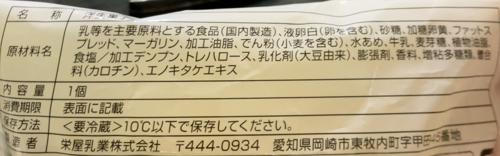 名称
原材料名 乳等を主要原料とする食品(国内製造)、液卵白(卵を含む)、砂糖、加糖卵黄、ファットス
プレッド、マーガリン、加工油脂、でん粉(小麦を含む)、水あめ、牛乳、麦芽糖、植物油脂、
食塩/加工デンプン、トレハロース、乳化剤(大豆由来)、膨張剤、香料、増粘多糖類、着色
料(カロチン)、エノキタケエキス
内容量 1個
消費期限 表面に記載
保存方法 <要冷蔵>10℃以下で保存してください。
造者 栄屋乳業株式会社 〒444-0934 愛知県岡崎市東牧内町字甲田45番地